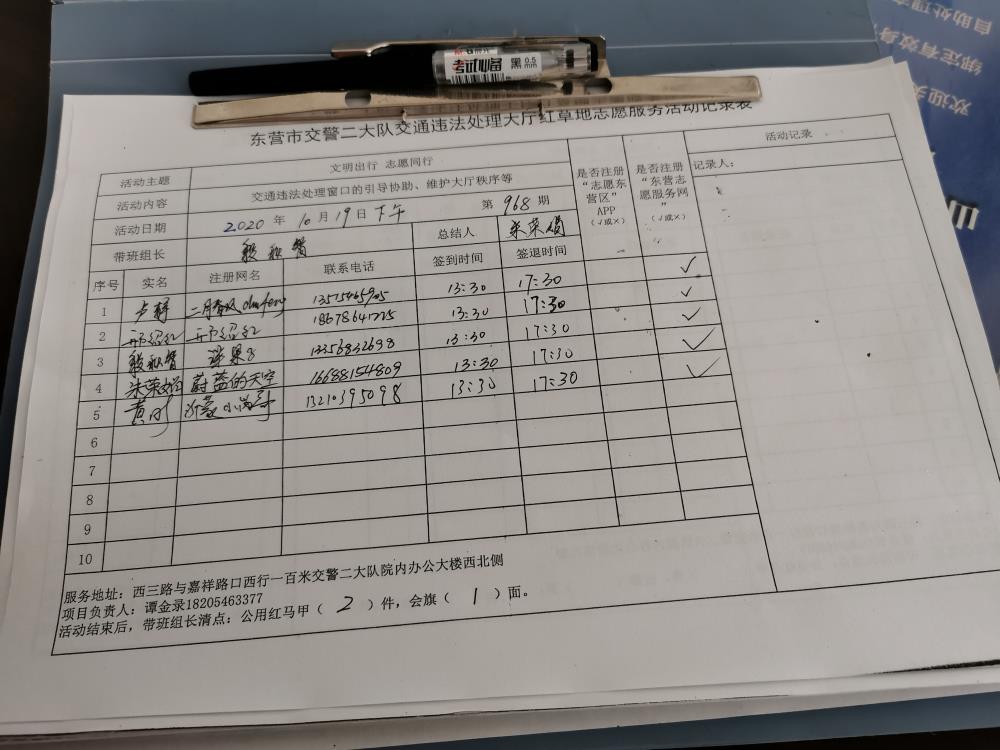 考试必备
黑 0.5mm
自助处理
绑定有效身
欢迎关
山
东营市交警二大队交通违法处理大厅红草地志愿服务活动记录表
活动主题 文明出行 志愿同行
活动内容 交通违法处理窗口的引导协助、维护大厅秩序等
活动日期 2020 年 10 月 19 日 下午 第 968 期
带班组长 总结人 朱荣娟
是否注册“志愿东营区”APP（√或×）
是否注册“东营志愿服务网”（√或×）
活动记录
记录人：
序号 实名 注册网名 联系电话 签到时间 签退时间
1 卢静 二月春风 13:30 17:30 ✓
2 邢绍红 邢绍红 18678641225 13:30 17:30 ✓
3 13356832698 13:30 17:30 ✓
4 朱荣娟 蔚蓝的天空 16688154809 13:30 17:30 ✓
5 黄刚 沂蒙小 13210395098 13:30 17:30 ✓
6
7
8
9
10
服务地址：西三路与嘉祥路口西行一百米交警二大队院内办公大楼西北侧
项目负责人：谭金录18205463377
活动结束后，带班组长清点：公用红马甲（ 2 ）件，会旗（ 1 ）面。